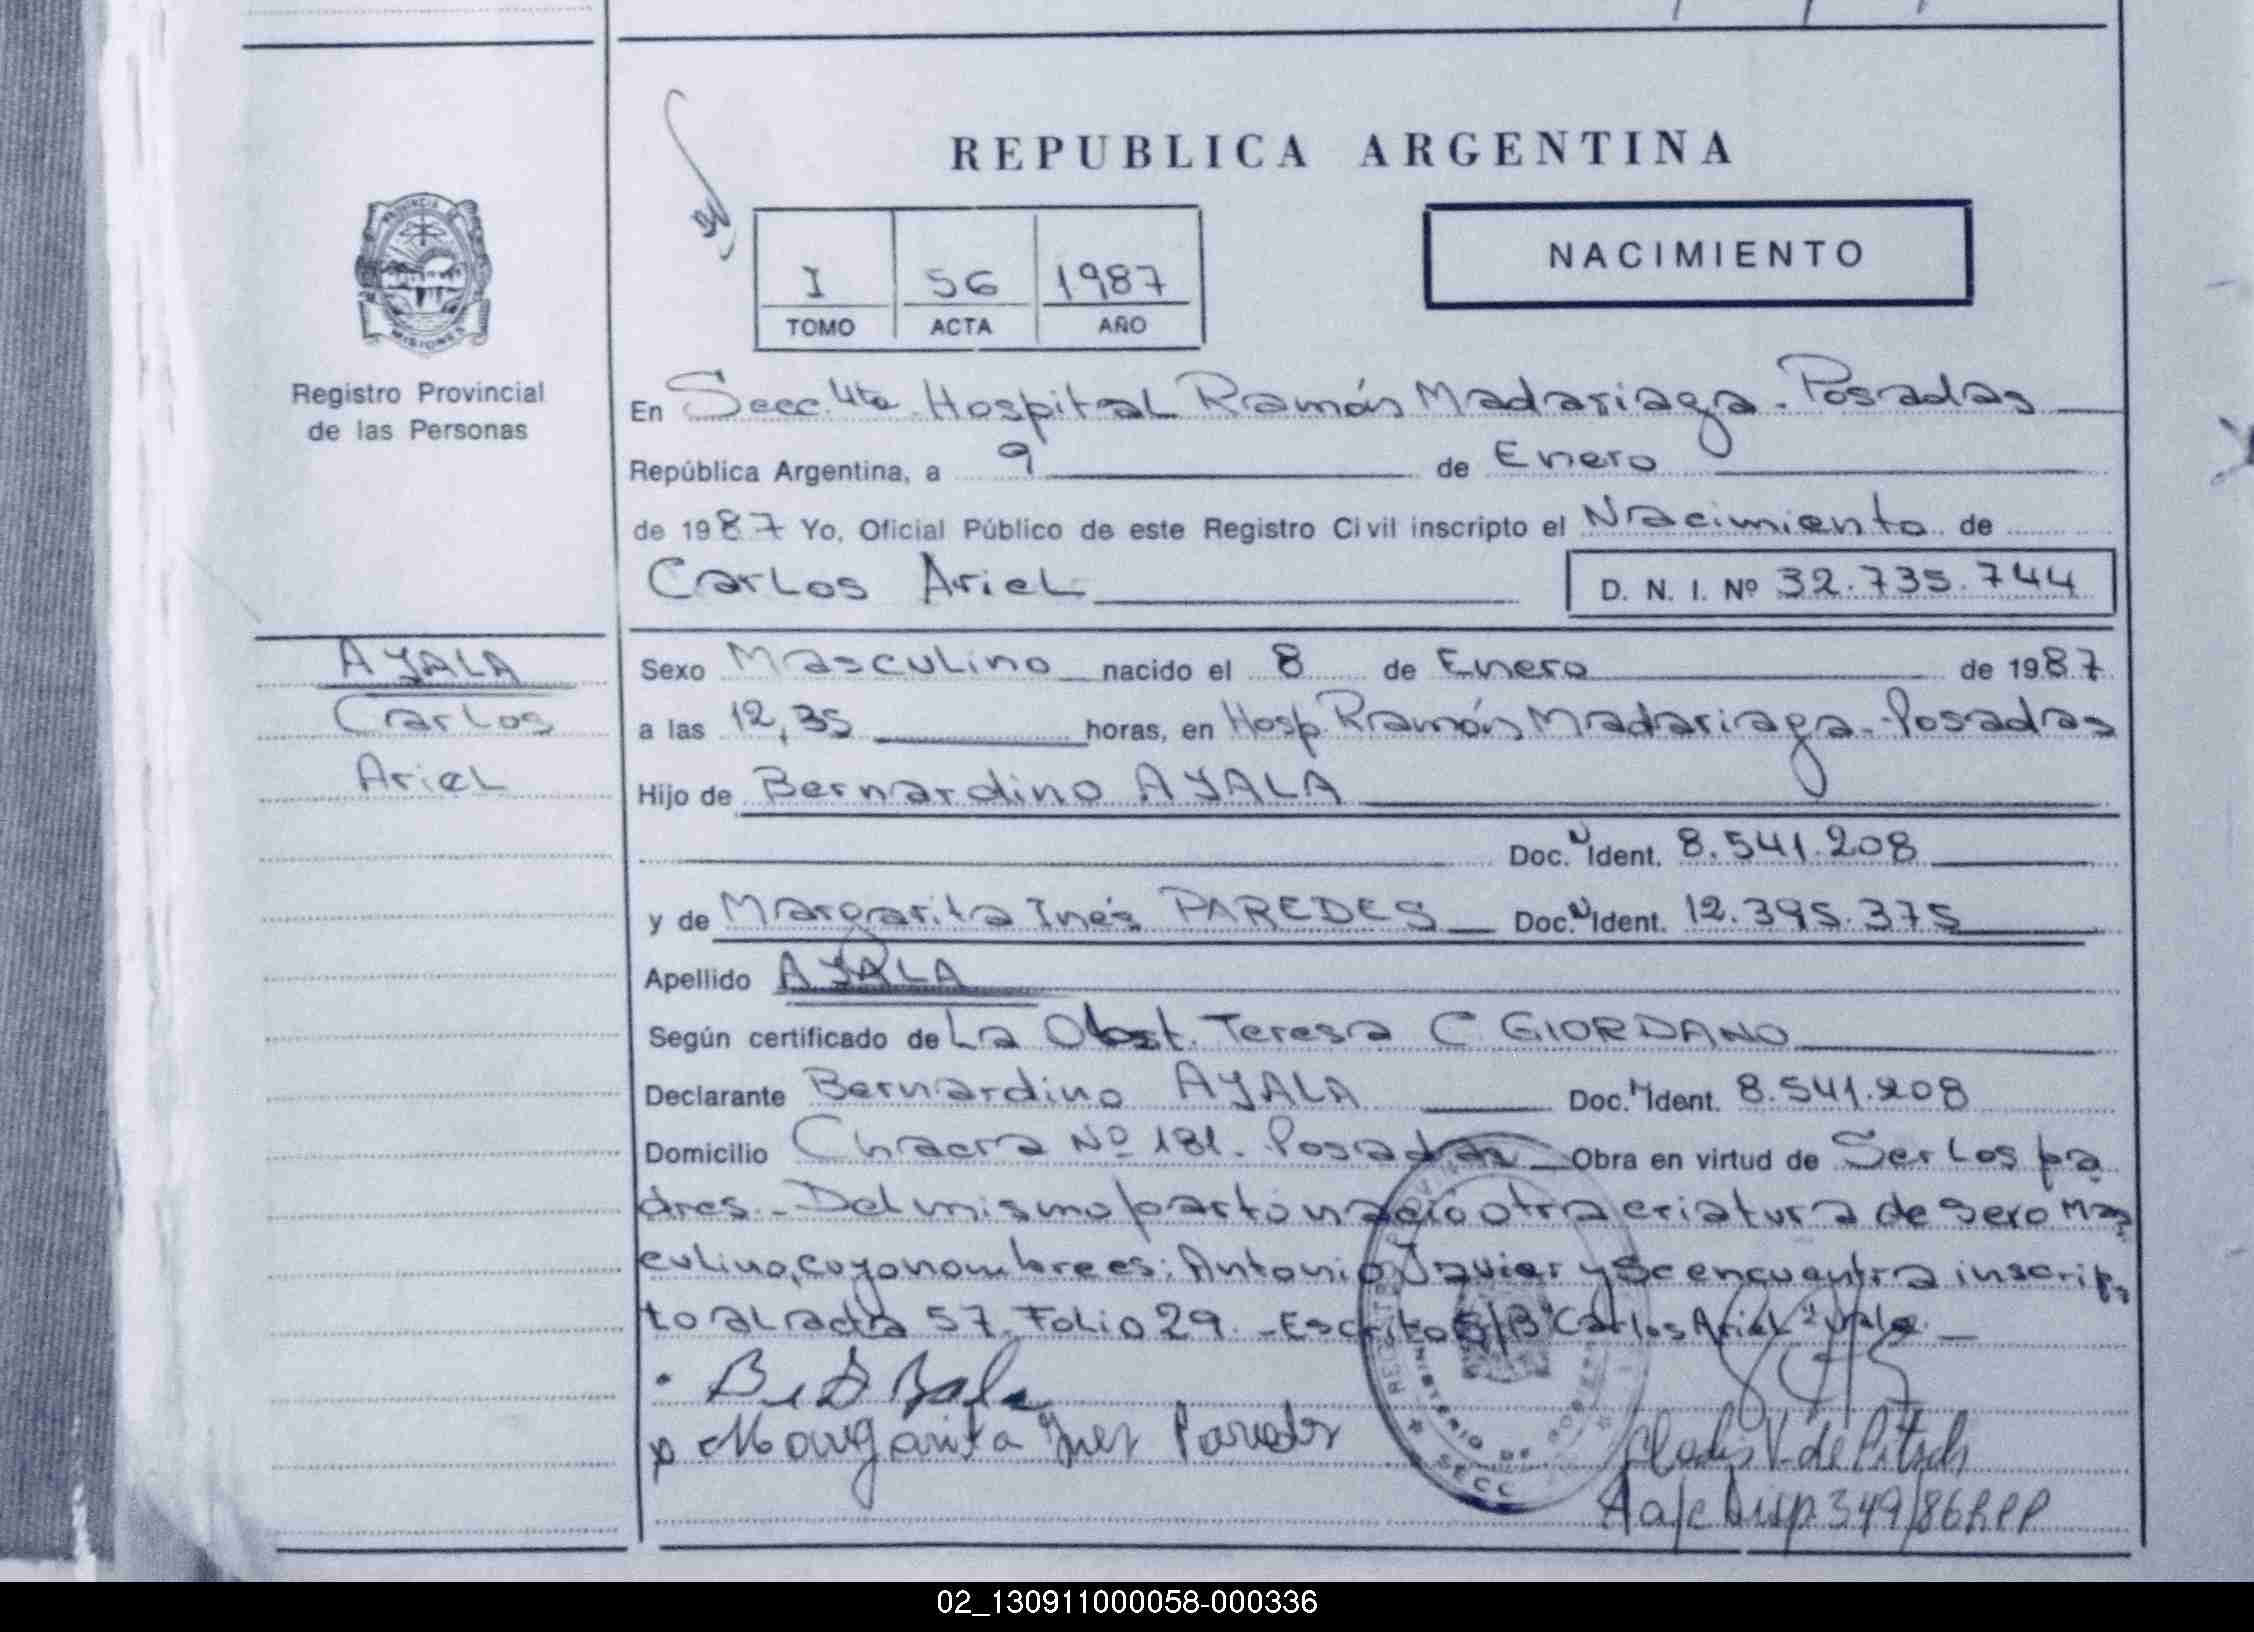 REPUBLICA ARGENTINA
NACIMIENTO
I 56 1987
TOMO ACTA AÑO
PROVINCIA DE MISIONES
Registro Provincial
de las Personas
En Secc. 4ta. Hospital Ramón Madariaga - Posadas
República Argentina, a 9 de Enero
de 1987 Yo, Oficial Público de este Registro Civil inscripto el Nacimiento de
Carlos Ariel D. N. I. Nº 32.735.744
AYALA
Carlos
Ariel
Sexo Masculino nacido el 8 de Enero de 1987
a las 12,35 horas, en Hosp. Ramón Madariaga - Posadas
Hijo de Bernardino AYALA
Doc. N Ident. 8.541.208
y de Margarita Inés PAREDES Doc. N Ident. 12.395.375
Apellido AYALA
Según certificado de La Obst. Teresa C GIORDANO
Declarante Bernardino AYALA Doc. N Ident. 8.541.208
Domicilio Chacra Nº 181. Posadas Obra en virtud de Ser Los pa
dres.- Del mismo parto nació otra criatura de sexo Mas
culino, cuyo nombre es: Antonio Javier y se encuentra inscrip
to al acta 57. Folio 29. - Escrito S/B "Carlos Ariel" vale.
Margarita Ines Paredes
Gladis V. de Pitsch
A a/c Disp. 349/86 RPP
SECC
02_130911000058-000336